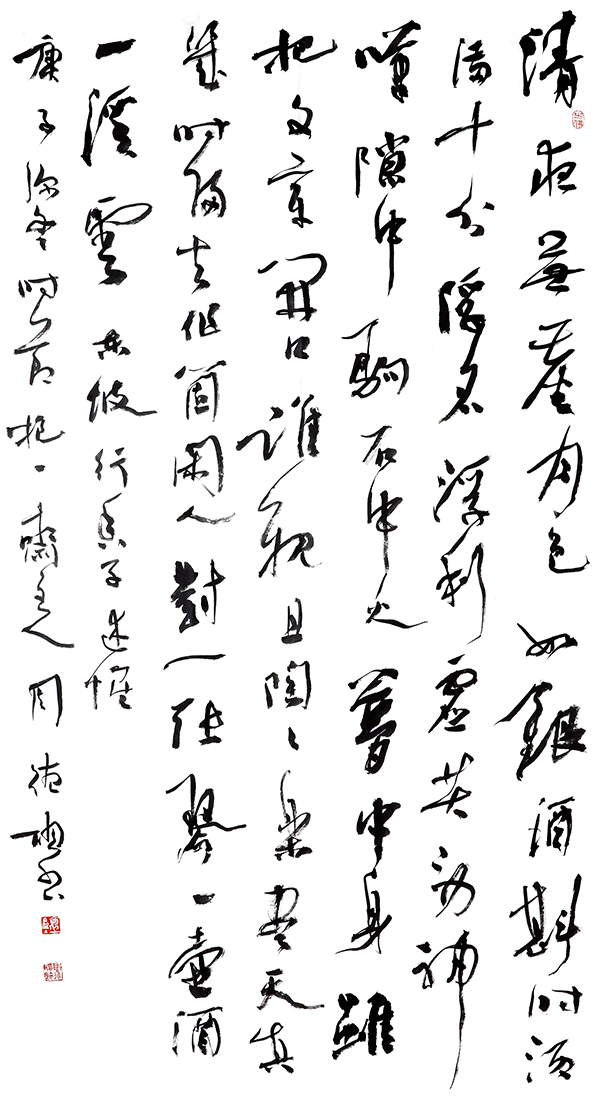 清夜無塵月色如銀酒斟時須
滿十分浮名浮利虛苦勞神
嘆隙中駒石中火夢中身雖
抱文章開口誰親且陶〻樂盡天真
幾時歸去作箇閑人對一張琴一壺酒
一溪雲 東坡行香子述懷
庚子深冬時節抱一齋主人周德聰書